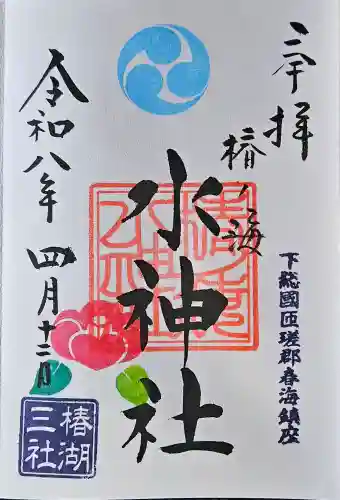 三拝
椿ノ海
水神社
下総國匝瑳郡春海鎮座
令和八年四月十二日
椿湖
三社